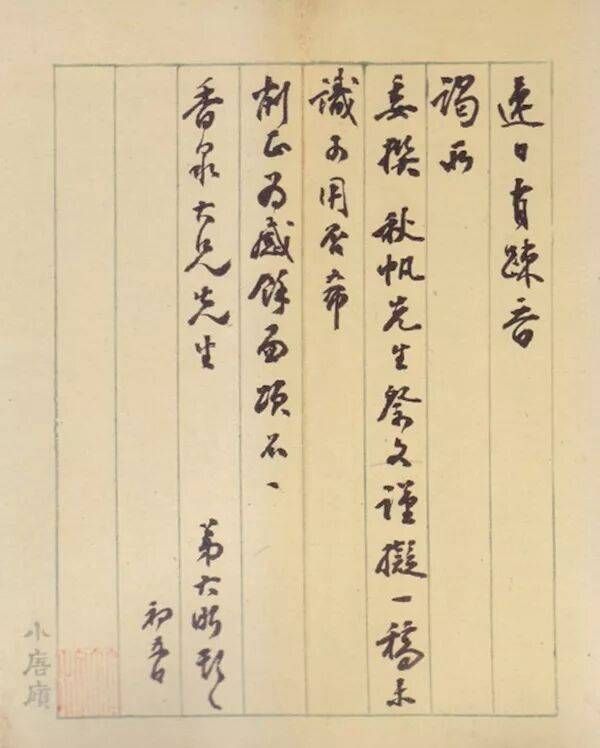 連日有疎晉
謁所
委撰 秋帆先生祭文謹擬一稿未
識可用否希
削正為感餘面頌不一
香泉大兄先生
弟大昕頓首
初五日
小唐